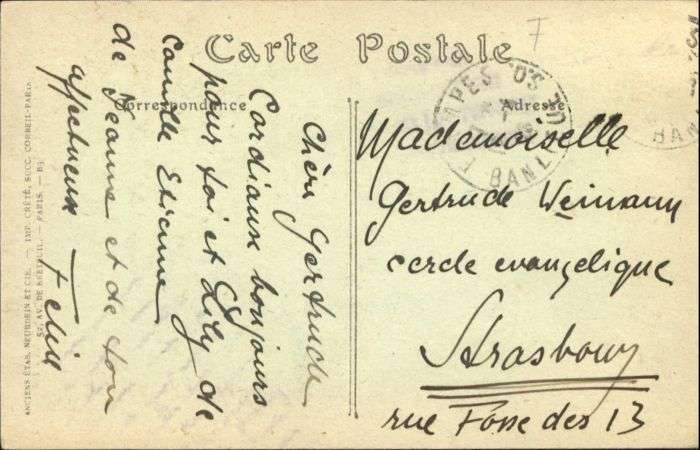 Carte Postale
Correspondance
Adresse
Chère Gertrude
Cordiaux bonjours
pour toi et Lily de
Camille Etienne
de Jeanne et de ton
affectueux Felix
Mademoiselle
Gertrude Weimann
cercle evangelique
Strasbourg
rue Fosse des 13
ANCIENS ÉTAB. NEURDEIN ET CIE. — IMP. CRÉTÉ, SUCC. CORBEIL-PARIS
52, AV. DE BRETEUIL. — PARIS. —
BANL
BAN